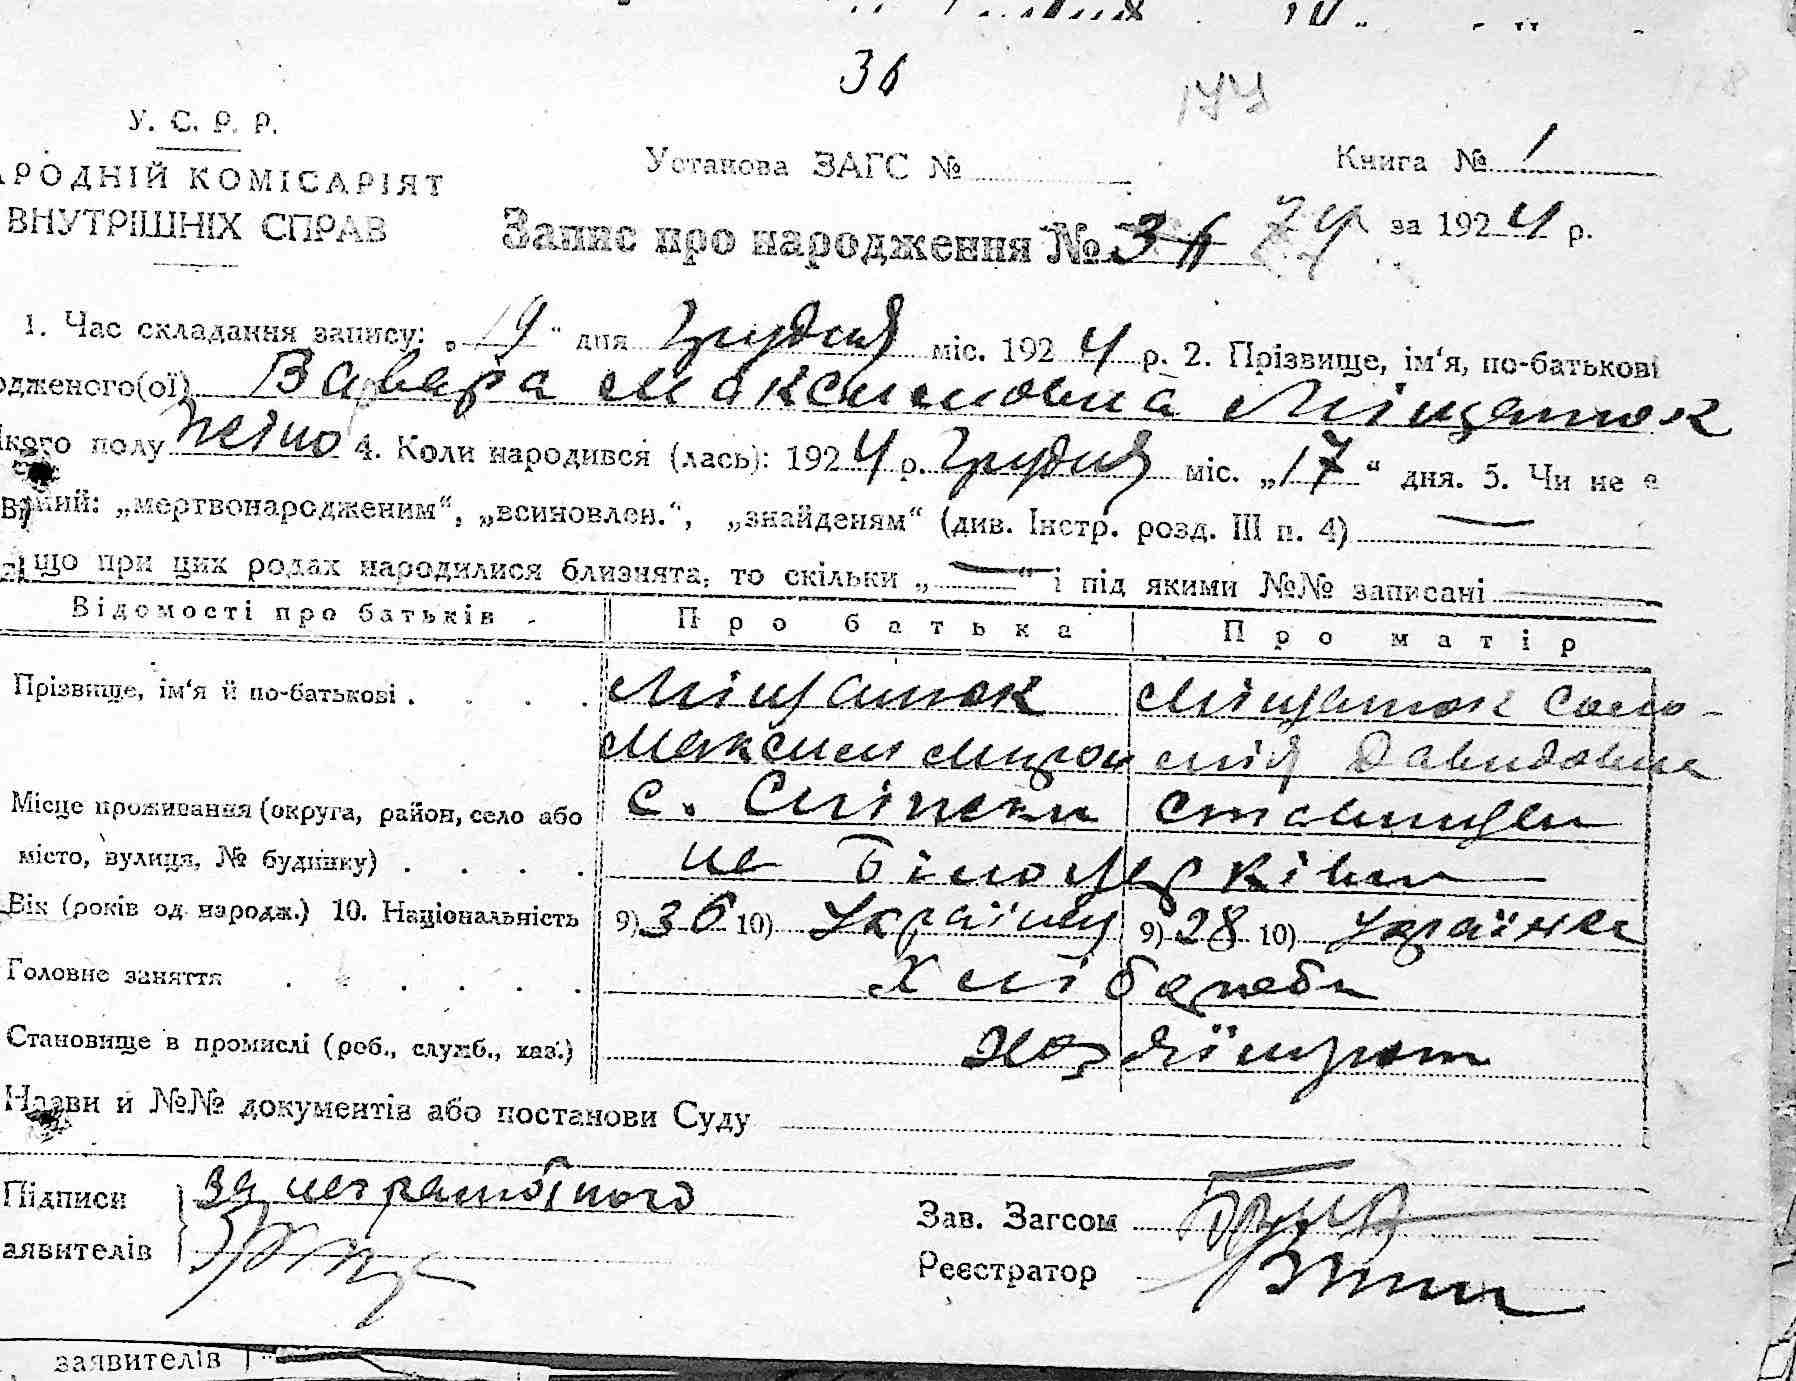 36
У. С. Р. Р.
АРОДНІЙ КОМІСАРІЯТ
ВНУТРІШНІХ СПРАВ
Установа ЗАГС №
Книга № 1
Запис про народження № 36 74 за 1924 р.
1. Час складання запису: „19“ дня Грудня міс. 1924 р. 2. Прізвище, ім‘я, по-батькові
одженого(ої) Варвара Максимовна Міщанюк
якого полу жіно 4. Коли народився (лась): 1924 р. Грудня міс. „17“ дня. 5. Чи не є
вий: „мертвонародженим“, „всиновлен.“, „знайденям“ (див. Інстр. розд. III п. 4) —
що при цих родах народилися близнята, то скільки „—“ і під якими №№ записані
Відомості про батьків
Про батька
Про матір
Прізвище, ім‘я й по-батькові
Міщанюк
Міщанюк Соло-
Максим Мирон
мія Давидовна
Місце проживання (округа, район, село або
місто, вулиця, № будинку)
с.
на Білоцерківни
Вік (років од народж.) 10. Національність
9) 36 10) Українц
9) 28 10) Українка
Головне заняття
Хлібороби
Становище в промислі (роб., служб., хаз.)
Назви й №№ документів або постанови Суду
Підписи
аявителів
За неграмотного
Зав. Загсом
Реєстратор
заявителів